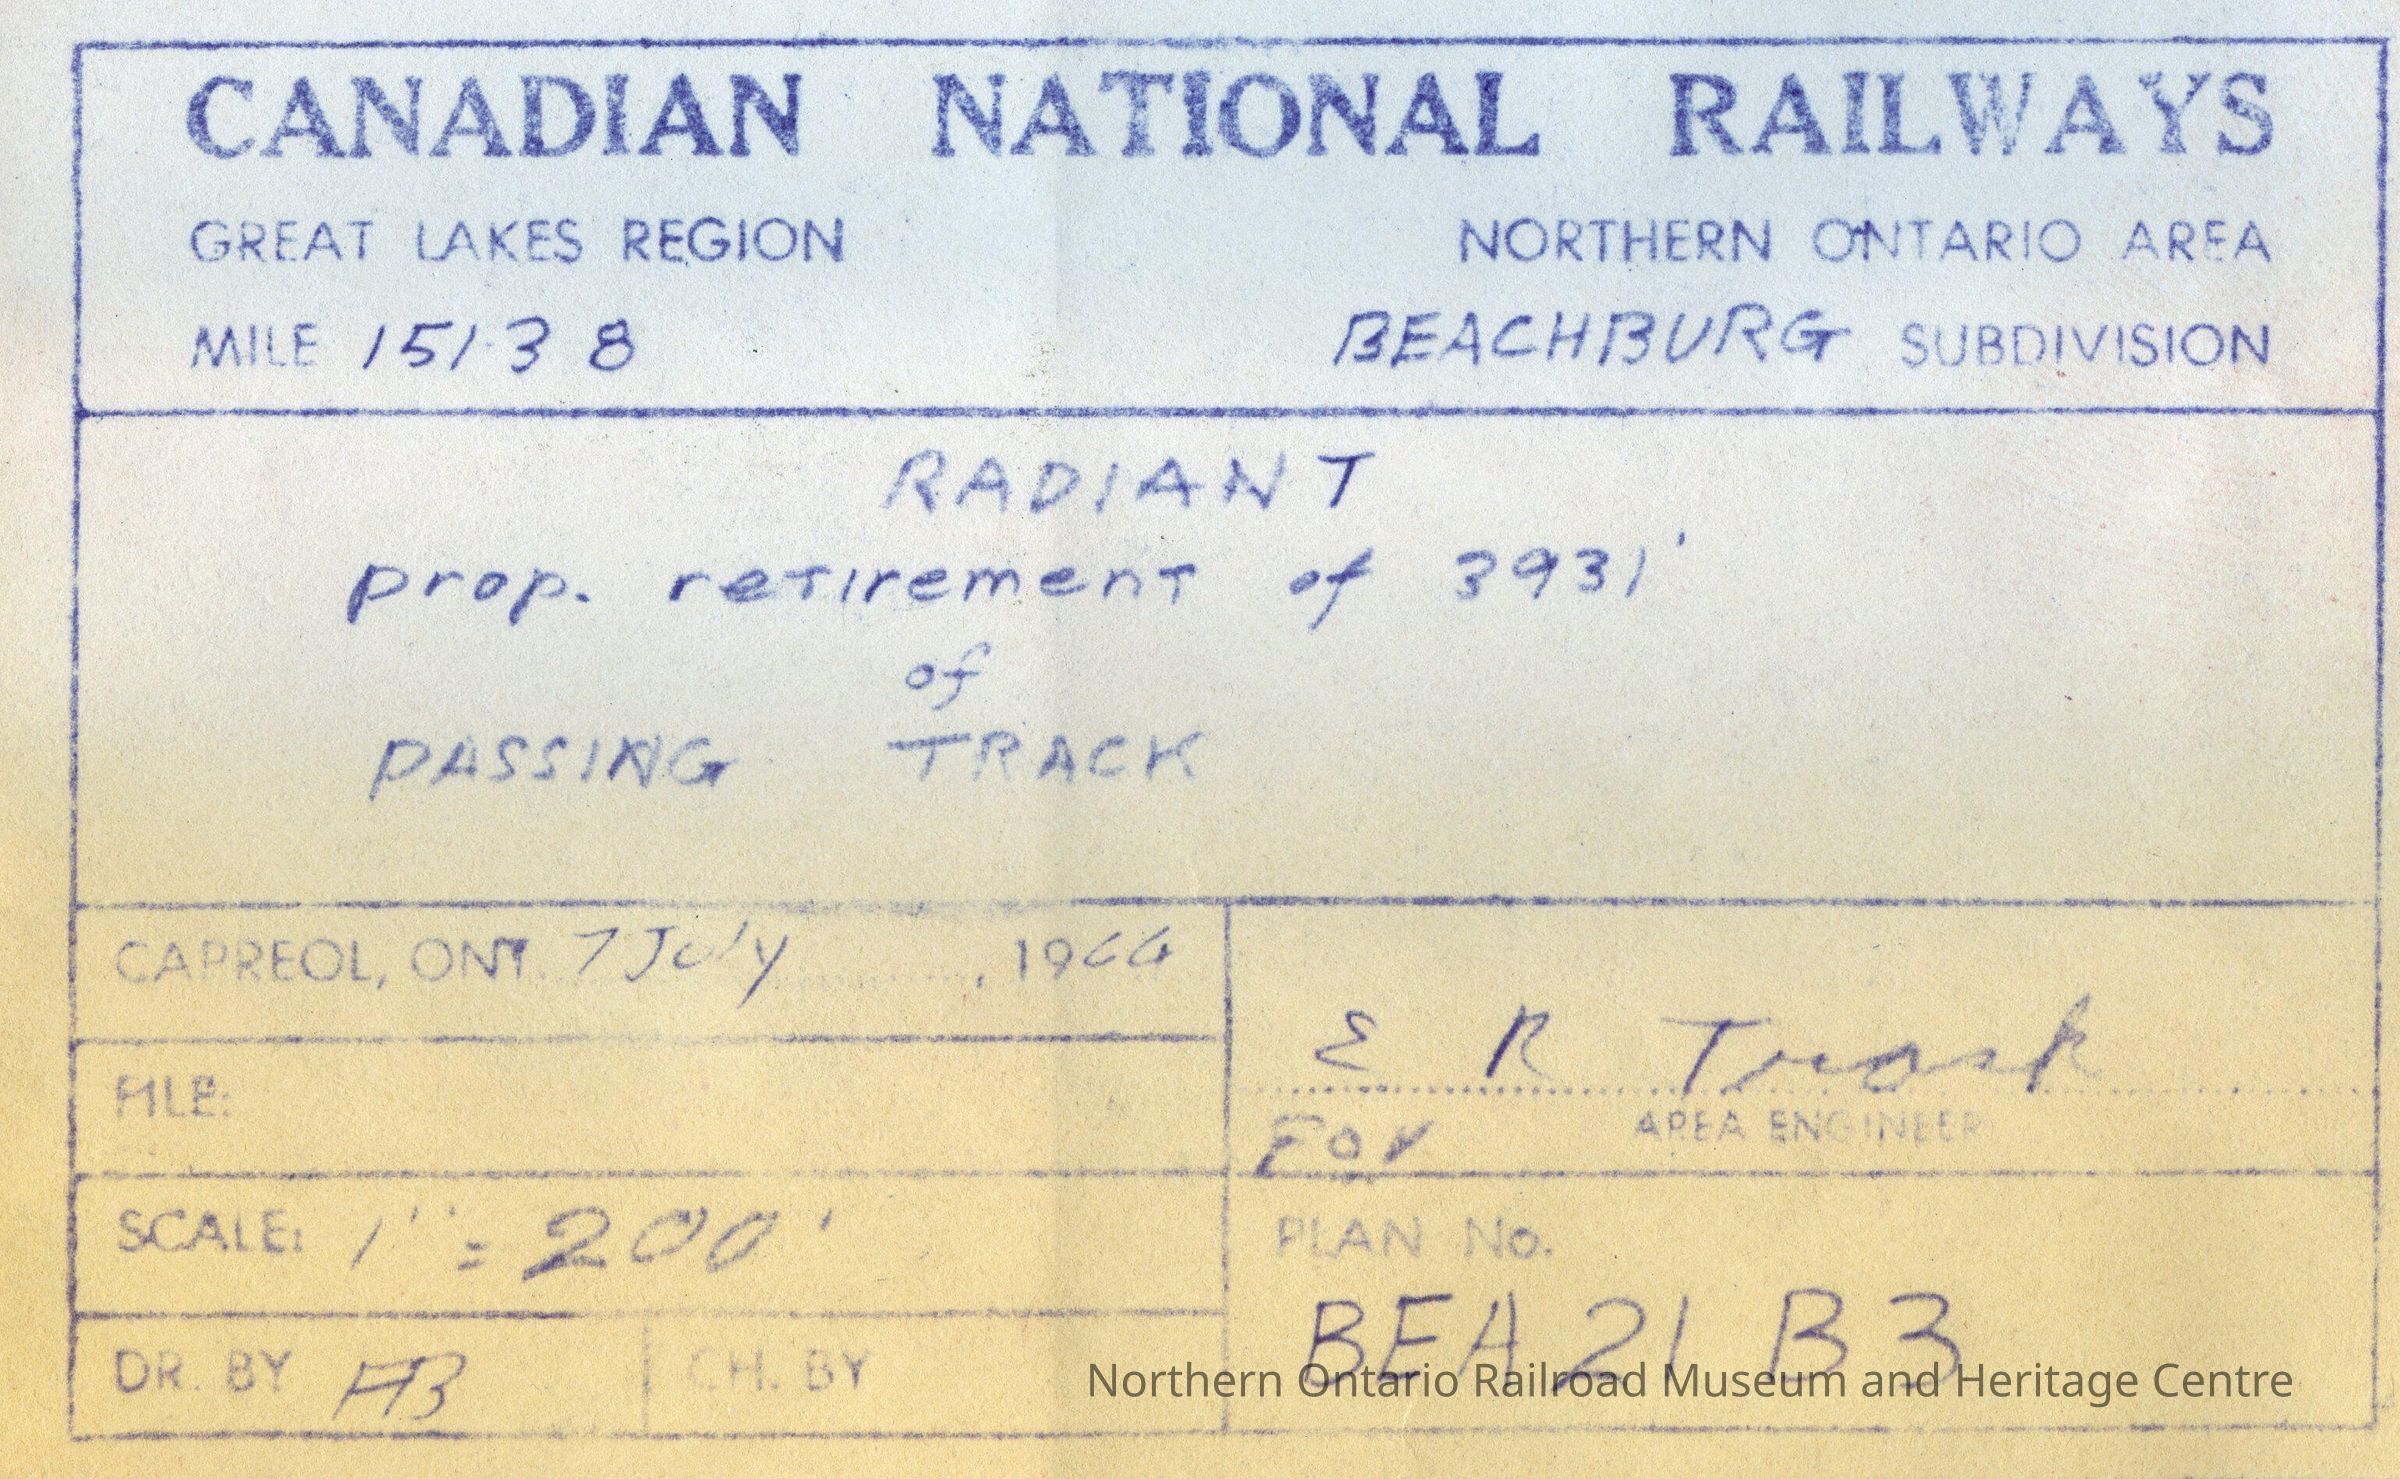 CANADIAN NATIONAL RAILWAYS
GREAT LAKES REGION NORTHERN ONTARIO AREA
MILE 151.38 BEACHBURG SUBDIVISION
RADIANT
prop. retirement of 3931'
of
PASSING TRACK
CAPREOL, ONT. 7 July, 1966
E R Trask
FILE:
For AREA ENGINEER
SCALE: 1" = 200'
PLAN No.
BEA 21 B 3
DR. BY CH. BY
Northern Ontario Railroad Museum and Heritage Centre